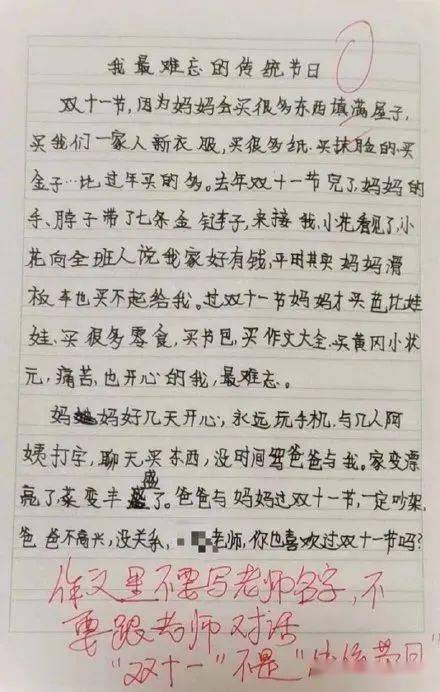 我最难忘的传统节日
双十一节,因为妈妈会买很多东西填满屋子,
买我们一家人新衣服,买很多纸、买抹脸的、买
金子…比过年买的多。去年双十一节完了,妈妈的
手、脖子带了七条金链子,来接我,小花看见了,小
花向全班人说我家好有钱,平时其实妈妈滑
板车也买不起给我。过双十一节妈妈才买芭比娃
娃、买很多零食,买书包,买作文大全、买黄冈小状
元,痛苦,也开心的我,最难忘。
妈妈好几天开心,永远玩手机,与几人阿
姨打字,聊天,买东西,没时间骂爸爸与我。家变漂
亮了,菜变丰盛了。爸爸与妈妈过双十一节,一定吵架,
爸爸不高兴,没关系,老师,你也喜欢过双十一节吗?
作文里不要写老师名字,不
要跟老师对话
"双十一"不是"传统节日"